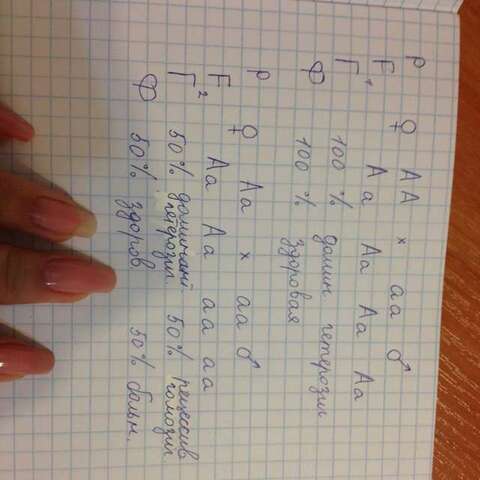 P ♀ AA × aa ♂
F₁ Aa Aa Aa Aa
Г 100% домин. гетерозиг
Ф 100% здоровая
P ♀ Aa × aa ♂
F₂ Aa Aa aa aa
Г 50% доминант. гетерозиг. 50% рецессив гомозиг.
Ф 50% здоров 50% больн.